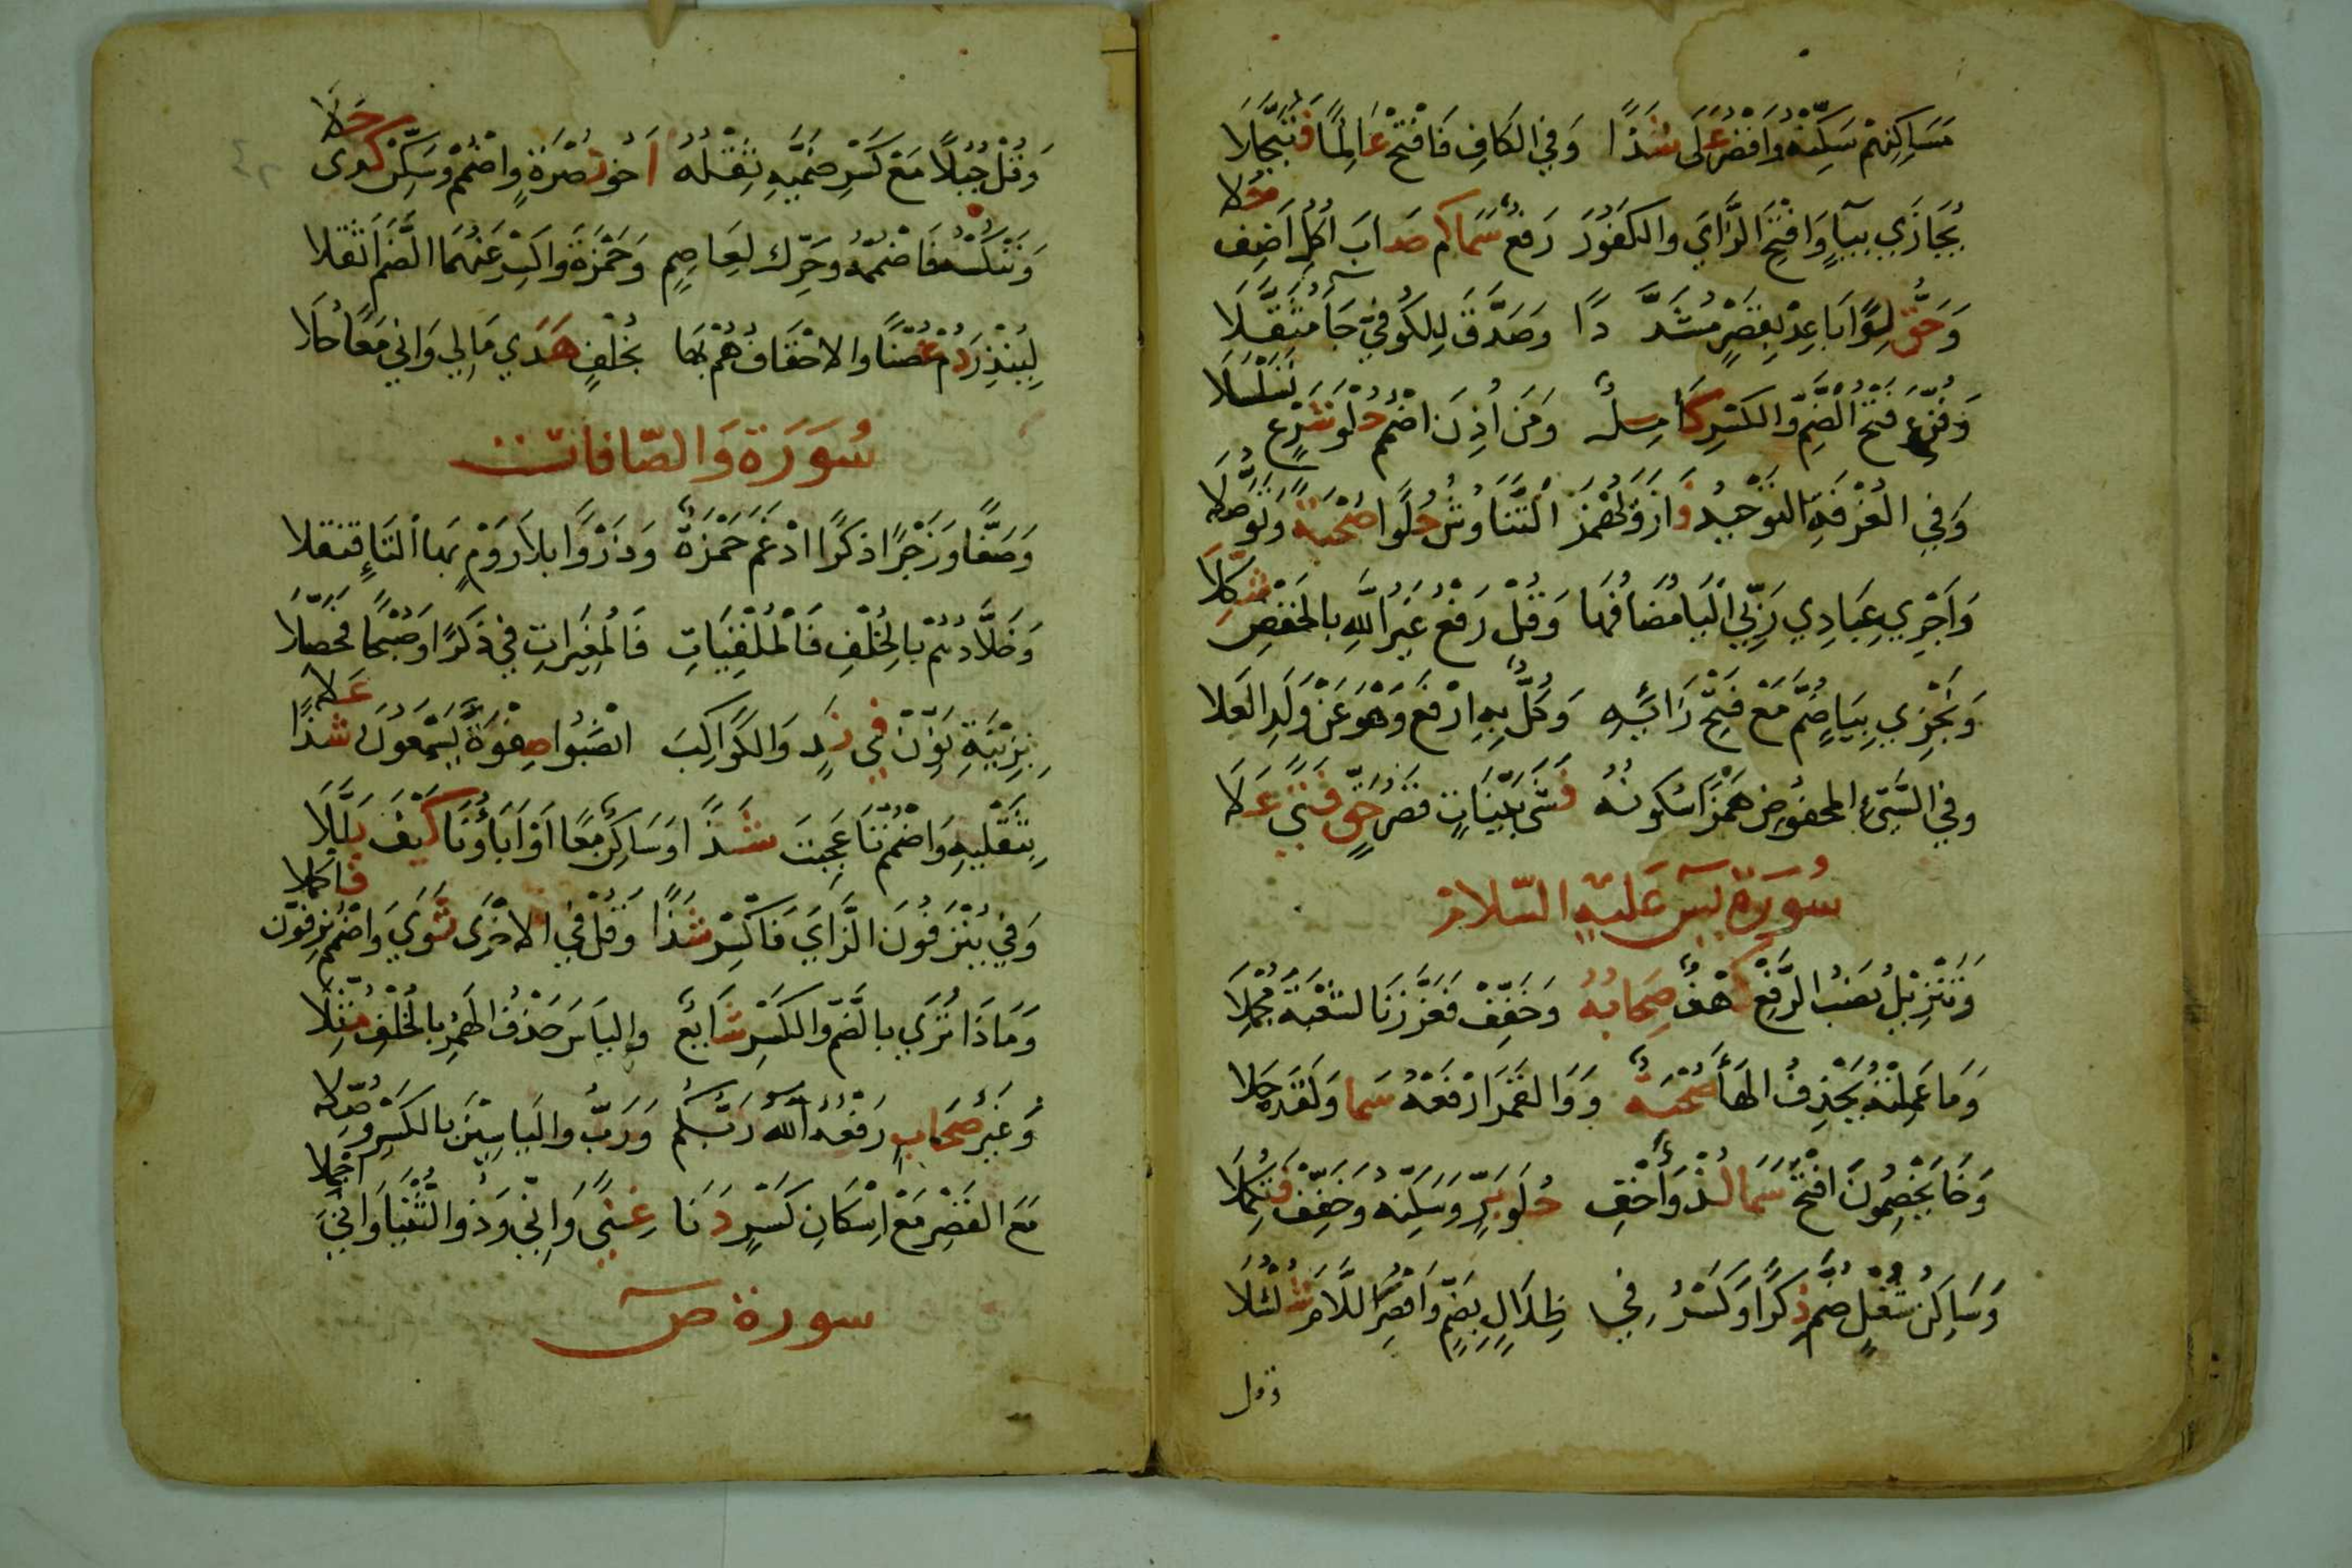 مَسَاكِنِهِمْ سَكِّنْهُ وَاقْصُرْ عَلَى شَذًا وَفِي الكَافِ فَافْتَحْ عَالِمًا فَتُبَجَّلَا
يُجَازَى بِيَاءٍ وَافْتَحِ الزَّايَ وَالكَفُورَ رَفْعٌ سَمَا كَمْ صَابَ اُكُلِ اَضِفْ حُلَا
وَحَقُّ لِوَا بَاعِدْ بِقَصْرٍ مُشَدَّدًا وَصَدَّقَ لِلكُوفِيِّ جَاءَ مُثَقَّلَا
وَفُزِّعَ فَتْحُ الضَّمِّ وَالكَسْرِ كَامِلٌ وَمَنْ اُذِنَ اضْمُمْ حُلْوَ شَرْعٍ تَسَلْسَلَا
وَفِي الغُرْفَةِ التَّوْحِيدُ فَازَ وَيُهْمَزُ التَّنَاوُشُ حُلْوًا صُحْبَةً وَتَوَصُّلَا
وَاَجْرِي عِبَادِي رَبِّيَ اليَا مُضَافُهَا وَقُلْ رَفْعُ غَيْرُ اللهِ بِالخَفْضِ شُكِّلَا
وَنَجْزِي بِيَاءٍ ضُمَّ مَعْ فَتْحِ زَايِهِ وَكُلَّ بِهِ ارْفَعْ وَهْوَ عَنْ وَلَدِ العَلَا
وَفِي السَّيِّئِ المَخْفُوضِ هَمْزًا سُكُونُهُ فَشَى بَيِّنَاتٍ قَصْرُ حَقٍّ فَتًى عَلَا
سُورَةُ يسٓ عَلَيْهِ السَّلَامْ
وَتَنْزِيلُ نَصْبُ الرَّفْعِ كَهْفُ صِحَابُهُ وَخَفِّفْ فَعَزَّزْنَا لِشُعْبَةَ مُجْمِلَا
وَمَا عَمِلَتْهُ يَحْذِفُ الهَاءَ صُحْبَةٌ وَوَالقَمَرَ ارْفَعْهُ سَمَا وَلَقَدْ حَلَا
وَخَا يَخْصِمُونَ افْتَحْ سَمَا لُذْ وَاَخْفِ حُلْوَ بَرٍّ وَسَكِّنْهُ وَخَفِّفْ فَتُكْمِلَا
وَسَاكِنَ شُغْلٍ ضُمَّ ذِكْرًا وَكَسْرُ فِي ظِلَالٍ بِضَمٍّ وَاقْصُرِ اللَّامَ شُلْشُلَا
وقل
وَقُلْ جُبُلًا مَعْ كَسْرِ ضَمَّيْهِ ثِقْلُهُ اَخُو نُصْرَةٍ وَاضْمُمْ وَسَكِّنْ كَذِى حَلَا
وَنَنْكُسْهُ فَاضْمُمْهُ وَحَرِّكْ لِعَاصِمٍ وَحَمْزَةَ وَاكْسِرْ عَنْهُمَا الضَّمَّ اَثْقَلَا
لِيُنْذِرَ دُمْ غُصْنًا وَالاحْقَافُ هُمْ بِهَا بِخُلْفٍ هَدَى مَالِي وَاِنِّي مَعًا حَلَا
سُورَةُ وَالصَّافَات
وَصَفًّا وَزَجْرًا ذِكْرًا ادْغَمَ حَمْزَةٌ وَذَرْوًا بِلَا رَوْمٍ بِهَا التَّا فَثَقَّلَا
وَخَلَّادُهُمْ بِالخُلْفِ فَالمُلْقِيَاتِ فَالمُغِيرَاتِ فِي ذِكْرًا وَصُبْحًا فَحَصِّلَا
بِزِيْنَةِ نَوِّنْ فِي نَدٍ وَالكَوَاكِبِ انْصِبُوا صِفْوَةً يَسَّمَّعُونَ شَذًا عَلَا
بِثِقْلَيْهِ وَاضْمُمْ تَا عَجِبْتَ شَذًا وَسَاكِنٌ مَعًا اَوْ اَبَاؤُنَا كَيْفَ بَلَّلَا
وَفِي يُنْزَفُونَ الزَّايَ فَاكْسِرْ شَذًا وَقُلْ فِي الاخْرَى ثَوَى وَاضْمُمْ يَزِفُّونَ فَاكْمُلَا
وَمَاذَا تُرِي بِالضَّمِّ وَالكَسْرِ شَايِعٌ وَاليَاسَ حَذْفُ الهَمْزِ بِالخُلْفِ مُثِّلَا
وَغَيْرُ صِحَابٍ رَفْعُهُ اللهُ رَبَّكُمْ وَرَبَّ وَاليَاسِيْنَ بِالكَسْرِ وُصِّلَا
مَعَ القَصْرِ مَعْ اِسْكَانِ كَسْرٍ دَنَا غِنًى وَاِنِّي وَذُو الثُّنْيَا وَاَنِّيَ اجْمِلَا
سورة صٓ